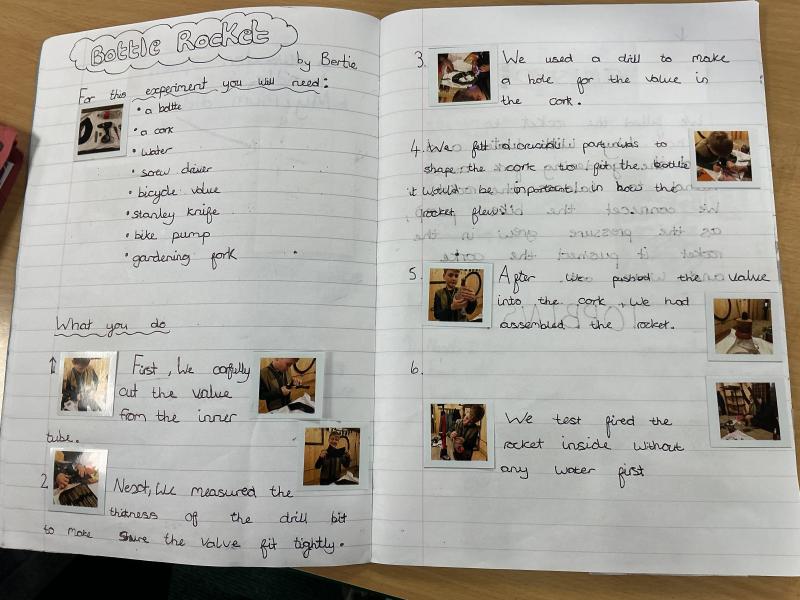 Bottle Rocket
by Bertie
For this experiment you will need:
• a bottle
• a cork
• water
• screw driver
• bicycle value
• stanley knife
• bike pump
• gardening fork
What you do
1 First, We carfully
cut the value
from the inner
tube.
2 Next, We measured the
thitness of the drill bit
to make sure the valve fit tightly.
3. We used a drill to make
a hole for the value in
the cork.
4. We felt a crucial part was to
shape the cork to fit the bottle
it would be important in how the
rocket flew.
5. After We pushed the value
into the cork, We had
assembled the rocket.
6.
We test fired the
rocket inside without
any water first